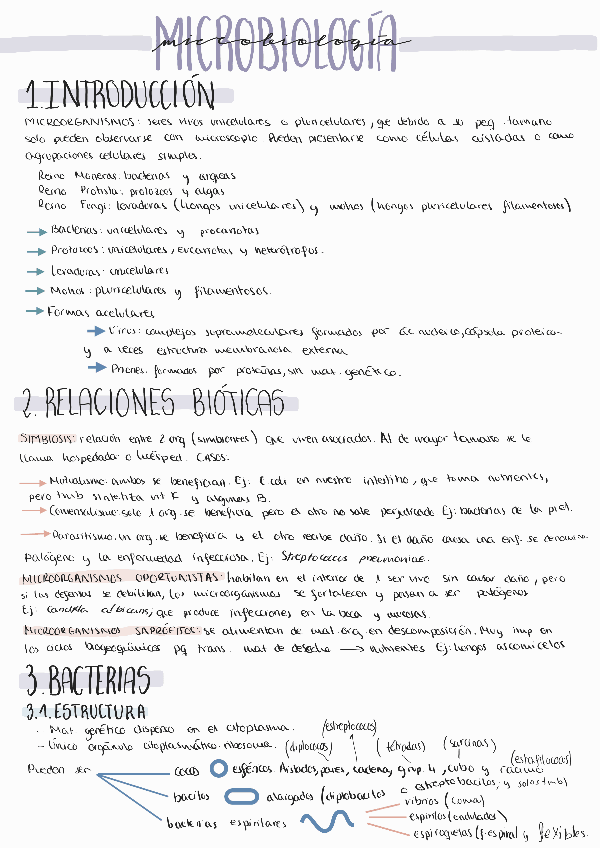 MICROBIOLOGÍA
microbiología
1.INTRODUCCIÓN
MICROORGANISMOS: seres vivos unicelulares o pluricelulares, que debido a su peq. tamaño
solo pueden observarse con microscopio. Pueden presentarse como células aisladas o como
agrupaciones celulares simples.
Reino Moneras: bacterias y arqueas
Reino Protista: protozoos y algas
Reino Fungi: levaduras (hongos unicelulares) y mohos (hongos pluricelulares filamentosos)
→ Bacterias: unicelulares y procariotas
→ Protozoos: unicelulares, eucariotas y heterótrofos.
→ Levaduras: unicelulares
→ Mohos: pluricelulares y filamentosos.
→ Formas acelulares
→ Virus: complejos supramoleculares formados por ác. nucleico, cápsula proteica
y a veces estructura membranosa externa
→ Priones: formados por proteínas, sin mat. genético.
2. RELACIONES BIÓTICAS
SIMBIOSIS: relación entre 2 org (simbiontes) que viven asociados. Al de mayor tamaño se le
llama hospedador o huésped. CASOS:
→ Mutualismo: ambos se benefician. Ej: E coli en nuestro intestino, que toma nutrientes,
pero tmb sintetiza vit K y algunas B.
→ Comensalismo: solo 1 org. se beneficia pero el otro no sale perjudicado Ej: bacterias de la piel.
→ Parasitismo: un org. se beneficia y el otro recibe daño. Si el daño causa una enf. se denomina
Patógeno y la enfermedad infecciosa. Ej. Streptococcus pneumoniae.
MICROORGANISMOS OPORTUNISTAS: habitan en el interior de 1 ser vivo sin causar daño, pero
si las defensas se debilitan, los microorganismos se fortalecen y pasan a ser patógenos
Ej: candida albicans, que produce infecciones en la boca y mucosas.
MICROORGANISMOS SAPRÓFITOS: se alimentan de mat. org. en descomposición. Muy imp en
los ciclos biogeoquímicos pq trans. mat de desecho → nutrientes Ej: hongos ascomicetos
3. BACTERIAS
3.1. ESTRUCTURA
- Mat genético disperso en el citoplasma.
(estreptococos)
- Único orgánulo citoplasmático: ribosoma.
(diplococos) (tétradas) (sarcinas)
(estafilococos)
Pueden ser
cocos esféricos. Aislados, pares, cadena, grup. 4, cubo y racimo
bacilos alargados (diplobacilos o estreptobacilos, y
bacterias espirilares
vibrios (coma)
espirilos (ondulados)
espiroquetas (f. espiral y flexibles.